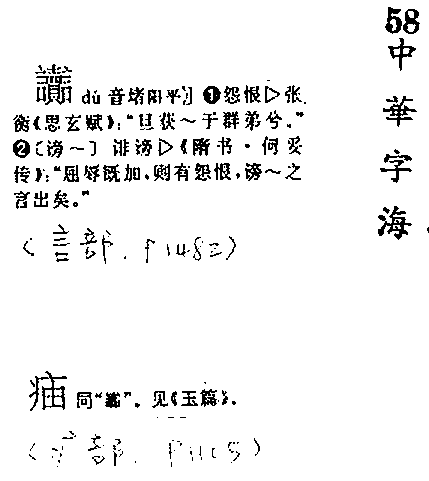 58
中華字海
dú 音堵阳平〕❶怨恨▷张
衡《思玄赋》:“旦获～于群弟兮。”
❷〔谤～〕诽谤▷《隋书·何妥
传》:“屈辱既加,则有怨恨,谤～之
言出矣。”
(言部. P1482)
同“ ”。见《玉篇》。
(疒部. P1105)